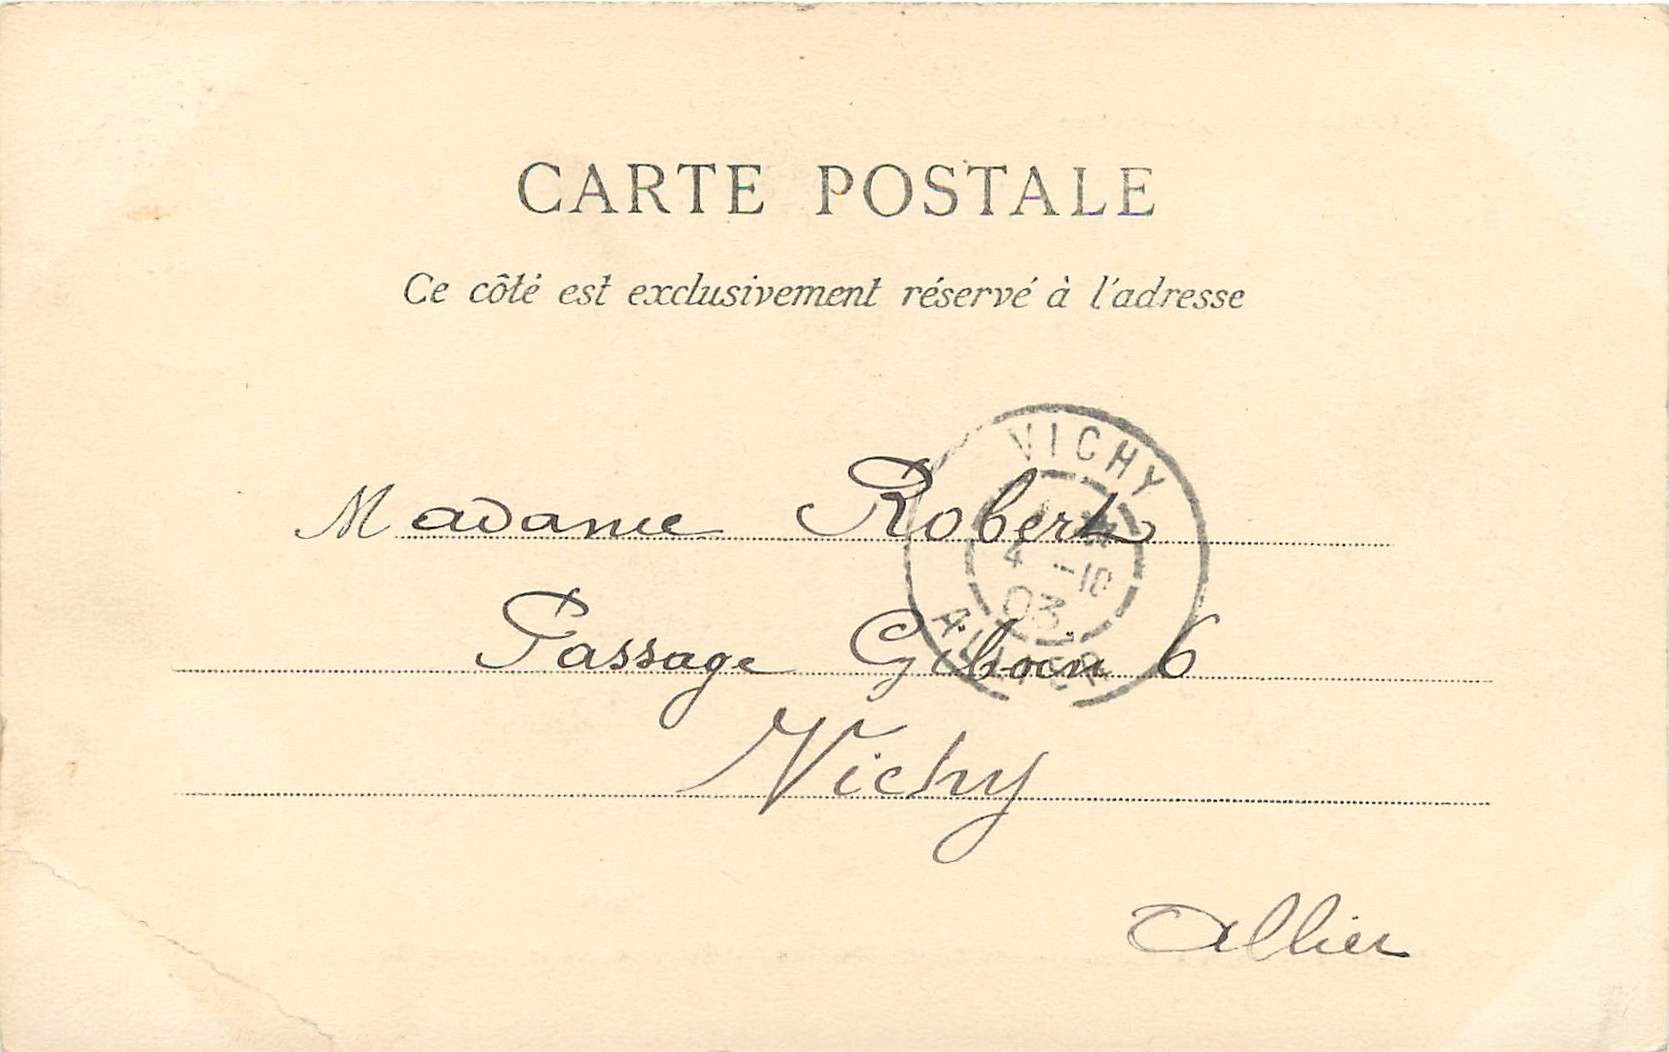 CARTE POSTALE
Ce côté est exclusivement réservé à l'adresse
VICHY
4 -10
03
ALLIER
Madame Robert
Passage Giboin 6
Vichy
Allier